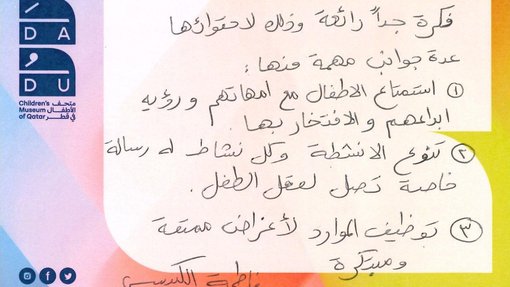 فكرة جداً رائعة وذلك لاحتوائها
عدة جوانب مهمة منها:
① استمتاع الاطفال مع امهاتهم ورؤيه
ابداعهم والافتخار بها.
② تنوع الانشطة وكل نشاط له رسالة
خاصة تصل لعقل الطفل.
③ توظيف الموارد لأغراض ممتعة
ومبتكرة
فاطمة
DADU
Children's
Museum
of Qatar
متحف
الأطفال
في قطر